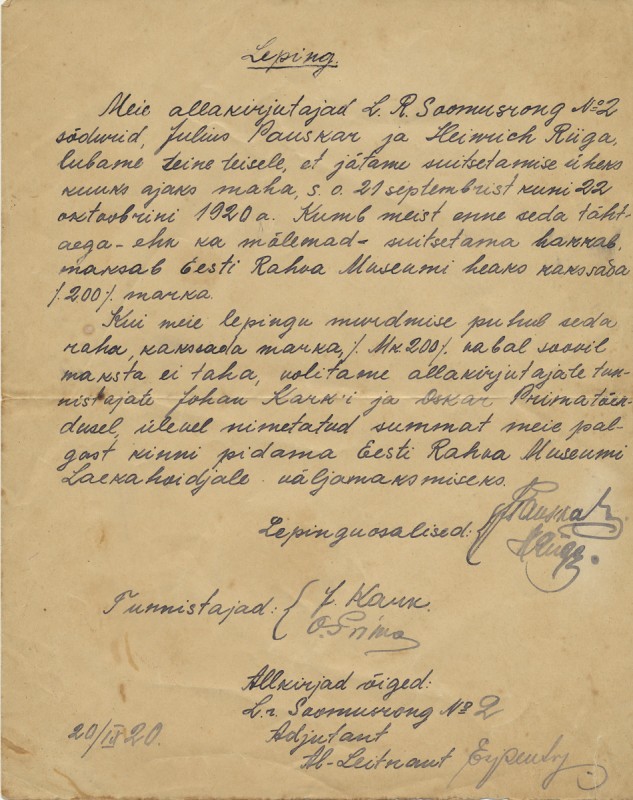 Leping.
Meie allakirjutajad L. R. Soomusrong №2
sõdurid, Julius Pauskar ja Heinrich Riiga,
lubame teine teisele, et jätame suitsetamise üheks
kuuks ajaks maha, s. o. 21 septembrist kuni 22
oktoobrini 1920 a. Kumb meist enne seda täht-
aega - ehk ka mõlemad - suitsetama hakkab,
maksab Eesti Rahva Museumi heaks kakssada
/.200/. marka.
Kui meie lepingu murdmise puhul seda
raha, kakssada marka, /. Mk. 200/. vabal soovil
maksta ei taha, volitame allakirjutajate tun-
nistajate Johan Kark'i ja Oskar Prima tõen-
dusel, ülevel nimetatud summat meie pal-
gast kinni pidama Eesti Rahva Museumi
Laekahoidjale väljamaksmiseks.
Lepinguosalised: Pauskar
HRiiga.
Tunnistajad: J. Kark.
O. Prima
Allkirjad õiged:
L. r. Soomusrong № 2
20/IX 20. Adjutant
Al-Leitnant